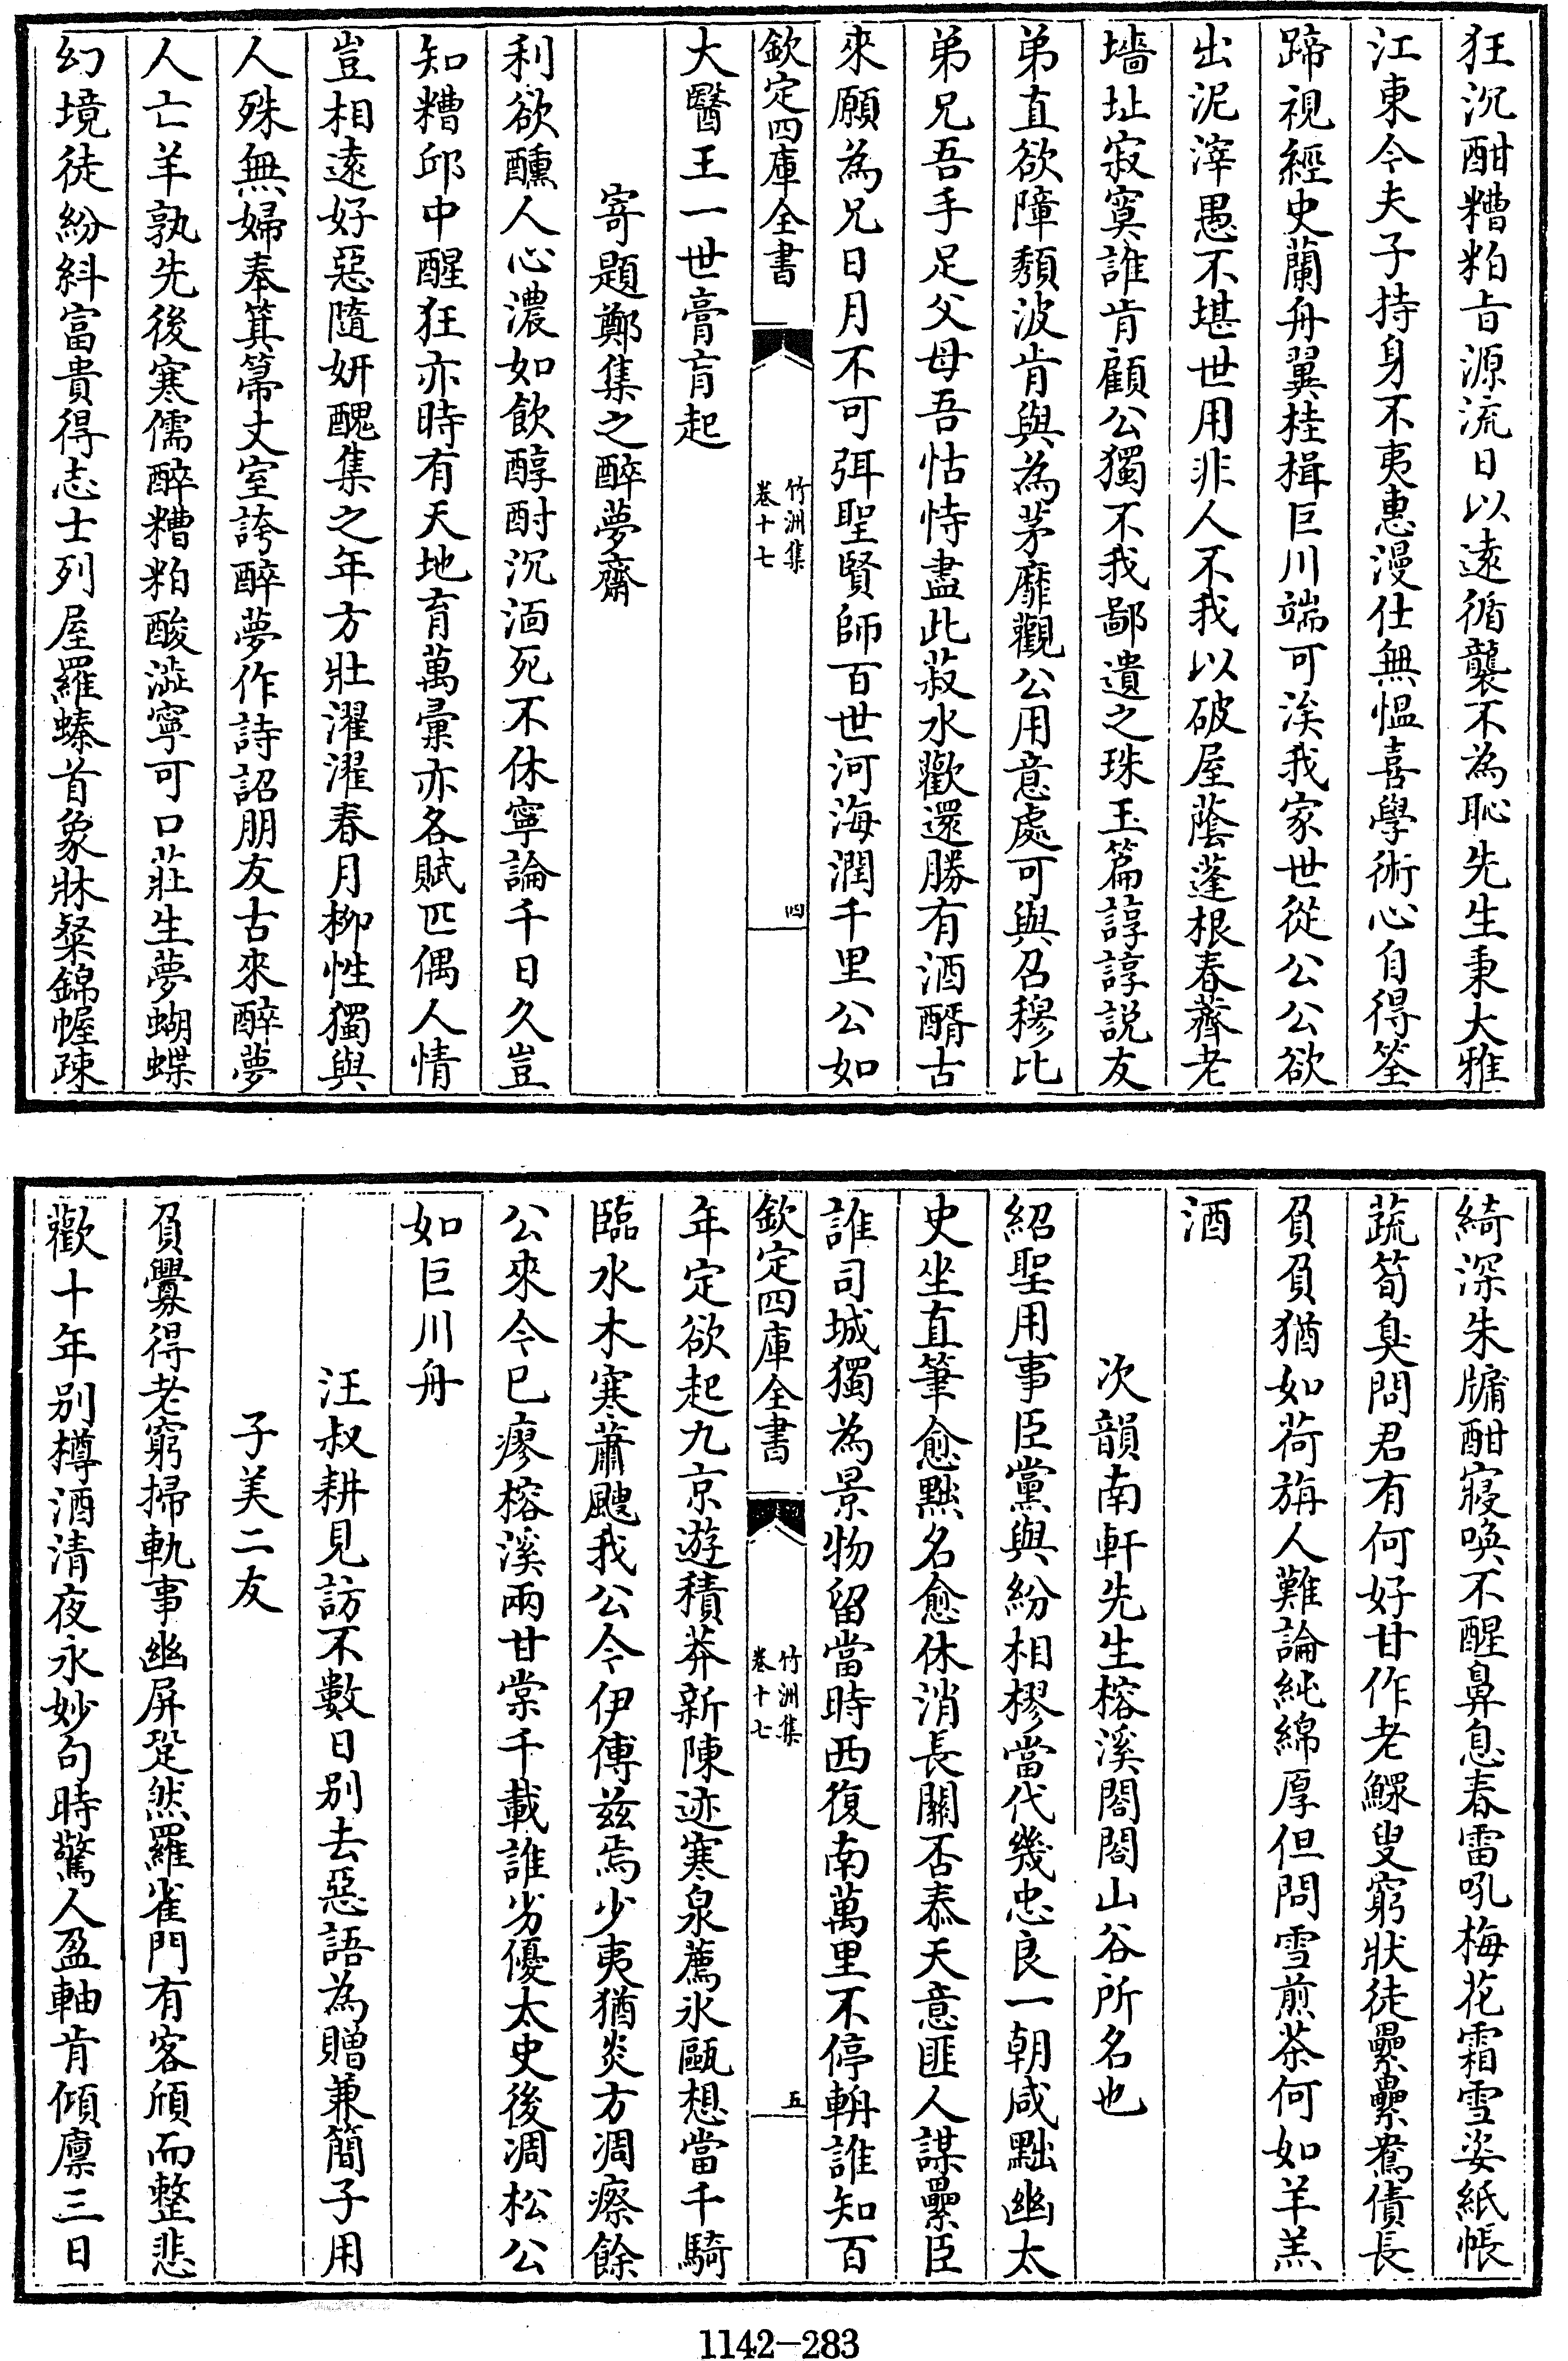 狂沉酣糟粕㫖源流日以逺循襲不為恥先生秉大雅
江東今夫子持身不夷惠漫仕無愠喜學術心自得筌
蹄視經史蘭舟翼桂楫巨川端可涘我家世從公公欲
出泥滓愚不堪世用非人不我以破屋蔭蓬根春薺老
墻址寂寞誰肯顧公獨不我鄙遺之珠玉篇諄諄説友
弟直欲障頽波肯與為茅靡觀公用意處可與召穆比
弟兄吾手足父母吾怙恃盡此菽水歡還勝有酒醑古
來願為兄日月不可弭聖賢師百世河海潤千里公如
欽定四庫全書
竹洲集
卷十七
四
大醫王一世膏肓起
寄題鄭集之醉夢齋
利欲醺人心濃如飲醇酎沉湎死不休寧論千日久豈
知糟邱中醒狂亦時有天地育萬彚亦各賦匹偶人情
豈相逺好惡隨妍醜集之年方壯濯濯春月柳性獨與
人殊無婦奉箕箒丈室誇醉夢作詩詔朋友古來醉夢
人亡羊孰先後寒儒醉糟粕酸澁寧可口莊生夢蝴蝶
幻境徒紛糾富貴得志士列屋羅螓首象牀粲錦幄疎
綺深朱牖酣寢喚不醒鼻息春雷吼梅花霜雪姿紙帳
蔬筍臭問君有何好甘作老鰥叟窮狀徒纍纍鴛債長
負負猶如荷旃人難論純綿厚但問雪煎茶何如羊羔
酒
次韻南軒先生榕溪閣閣山谷所名也
紹聖用事臣黨與紛相樛當代幾忠良一朝咸黜幽太
史坐直筆愈黜名愈休消長關否泰天意匪人謀纍臣
誰司城獨為景物留當時西復南萬里不停輈誰知百
欽定四庫全書
竹洲集
卷十七
五
年定欲起九京遊積莽新陳迹寒泉薦氷甌想當千騎
臨水木寒蕭颼我公今伊傅兹焉少夷猶炎方凋瘵餘
公來今已瘳榕溪兩甘棠千載誰劣優太史後凋松公
如巨川舟
汪叔耕見訪不數日别去惡語為贈兼簡子用
子美二友
負釁得老窮掃軌事幽屏跫然羅雀門有客頎而整悲
歡十年别樽酒清夜永妙句時驚人盈軸肯傾廪三日
1142-283